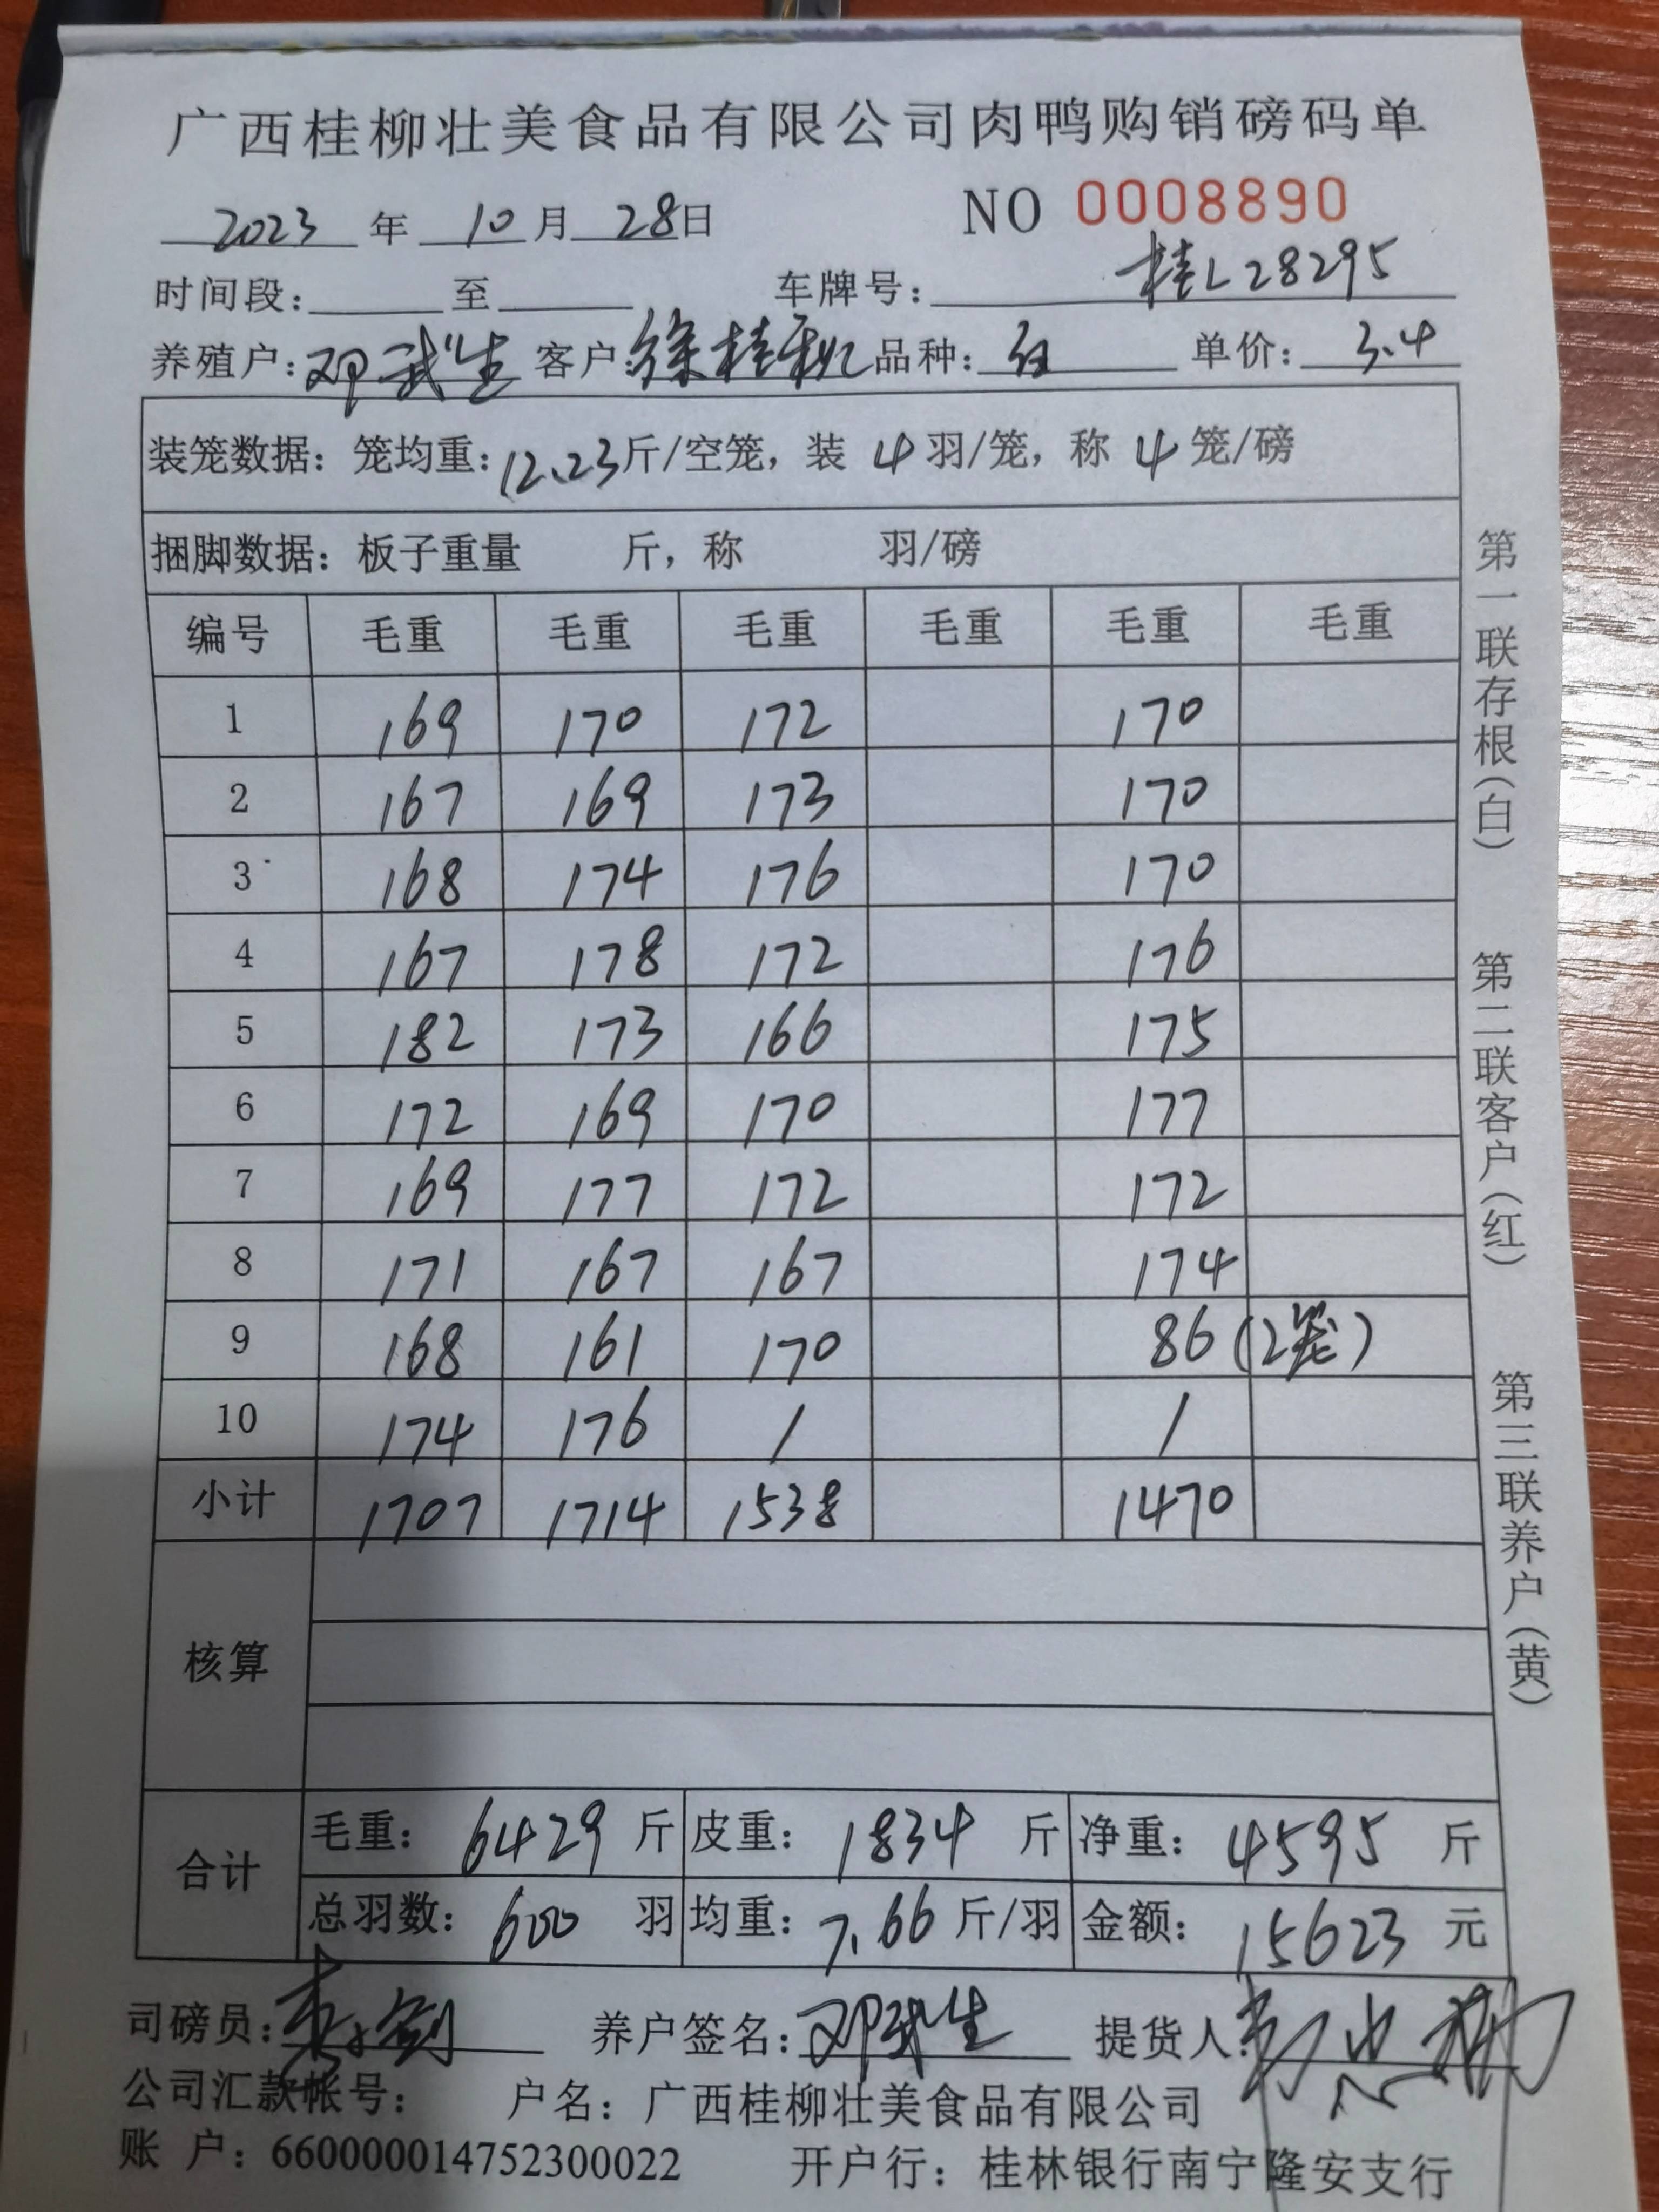 广西桂柳壮美食品有限公司肉鸭购销磅码单
2023 年 10 月 28日 NO 0008890
时间段: 至 车牌号: 桂L28295
养殖户: 邓武生 客户: 徐桂秋 品种: 白 单价: 3.4
装笼数据: 笼均重: 12.23斤/空笼, 装 4 羽/笼, 称 4 笼/磅
捆脚数据: 板子重量 斤, 称 羽/磅
编号 毛重 毛重 毛重 毛重 毛重 毛重
1 169 170 172 170
2 167 169 173 170
3 168 174 176 170
4 167 178 172 176
5 182 173 166 175
6 172 169 170 177
7 169 177 172 172
8 171 167 167 174
9 168 161 170 86 (2笼)
10 174 176 / /
小计 1707 1714 1538 1470
核算
合计 毛重: 6429 斤 皮重: 1834 斤 净重: 4595 斤
总羽数: 600 羽 均重: 7.66 斤/羽 金额: 15623 元
司磅员: 养户签名: 邓武生 提货人:
公司汇款帐号: 户名: 广西桂柳壮美食品有限公司
账 户: 660000014752300022 开户行: 桂林银行南宁隆安支行
第一联存根(白)
第二联客户(红)
第三联养户(黄)